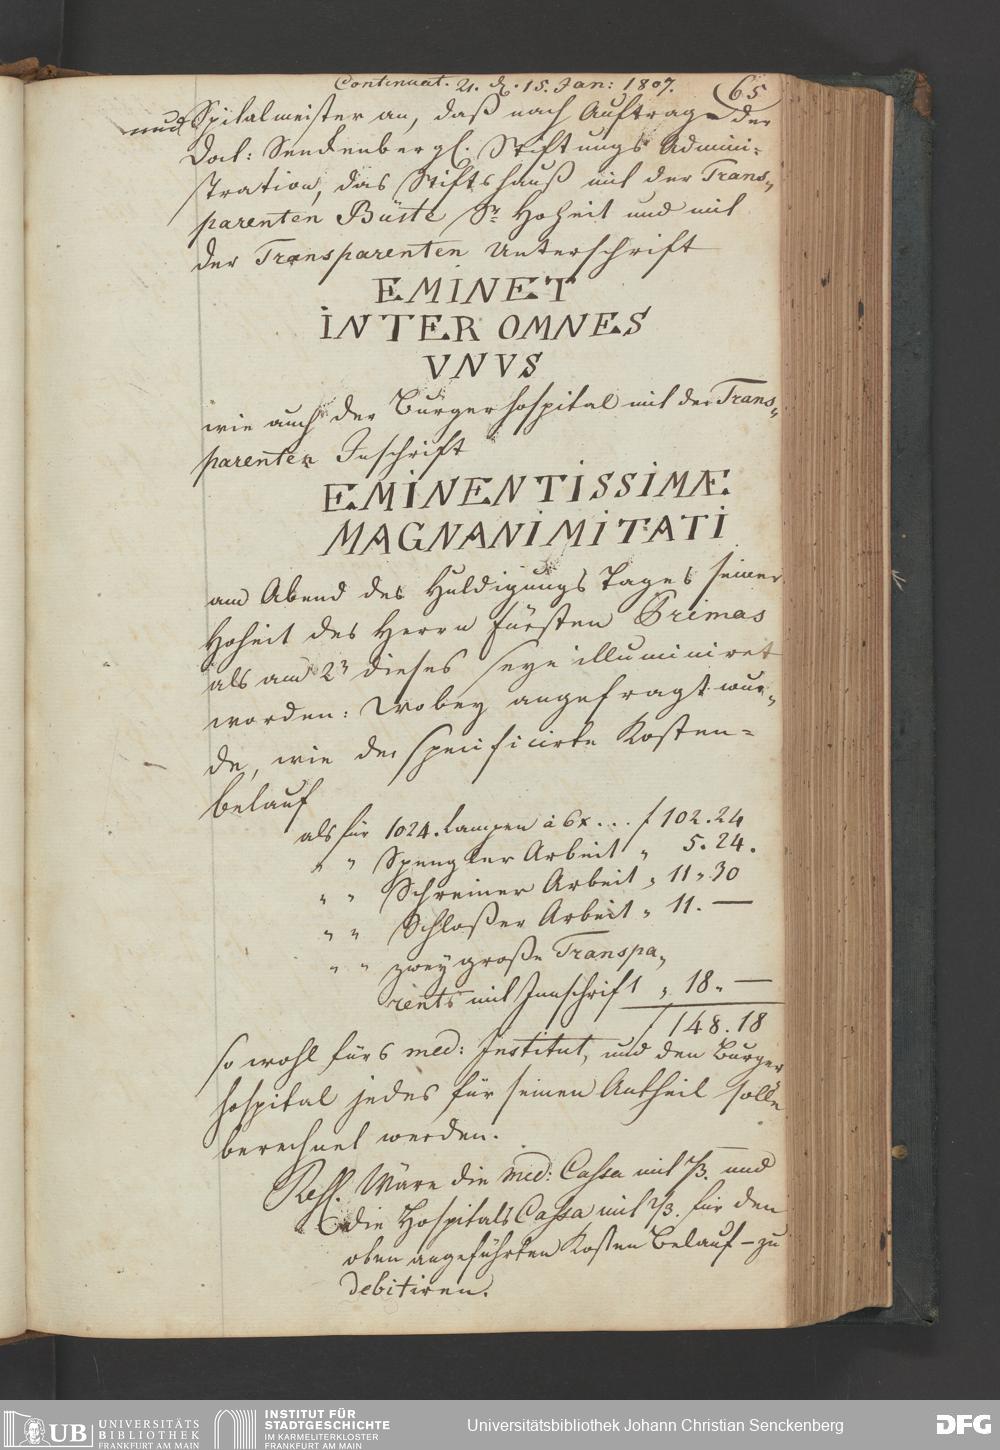 Continuat. 21. d. 15. Jan: 1807.
65
und Spitalmeister an, daß nach Auftrag der
Doct: Senckenbergl. Stiftungs Admini=
stration, das Stiftshauß mit der Trans„
parenten Büste Sr. Hoheit und mit
der Transparenten Unterschrift
EMINET
INTER OMNES
VNVS
wie auch der Burgerhospital mit der Trans„
parenten Inschrift
EMINENTISSIMÆ
MAGNANIMITATI
am Abend des Huldigungs Tages seiner
Hoheit des Herrn Fürsten Primas
als am 2n dieses seye illuminiret
worden: Wobey angefragt wur„
de, wie der specificirte Kosten=
belauf
als für 1024. Lampen à 6x... f 102.24
„ „ Spengler Arbeit „ 5.24.
„ „ Schreiner Arbeit „ 11 „ 30
„ „ Schloßer Arbeit „ 11. —
„ „ zwey große Transpa„
rents mit Innschrift „ 18 „ —
f 148.18
so wohl fürs med: Institut, und den Burger
hospital jedes für seinen Antheil solle
berechnet werden.
Resl. Wäre die med: Cassa mit 1/3. und
die Hospitals Cassa mit 2/3. für den
oben angeführten Kosten Belauf – zu
debitiren.
UB UNIVERSITÄTS
BIBLIOTHEK
FRANKFURT AM MAIN
INSTITUT FÜR
STADTGESCHICHTE
IM KARMELITERKLOSTER
FRANKFURT AM MAIN
Universitätsbibliothek Johann Christian Senckenberg
DFG